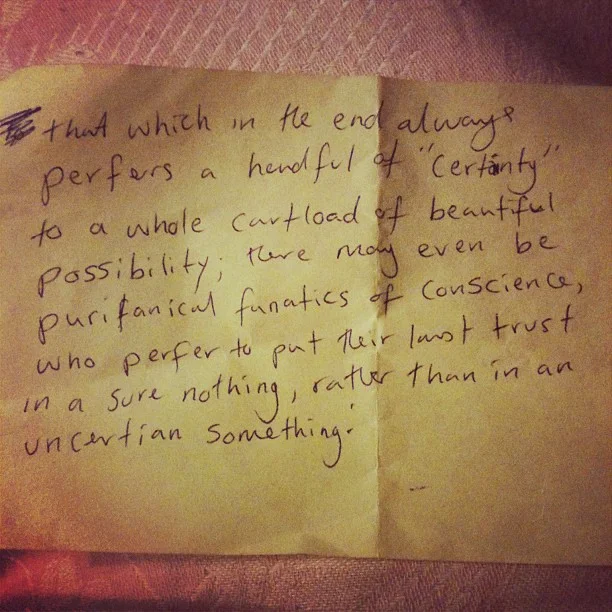 that which in the end always
perfers a handful of "Certainty"
to a whole cartload of beautiful
possibility; there may even be
puritanical fanatics of conscience,
who perfer to put their last trust
in a sure nothing, rather than in an
uncertian something.'